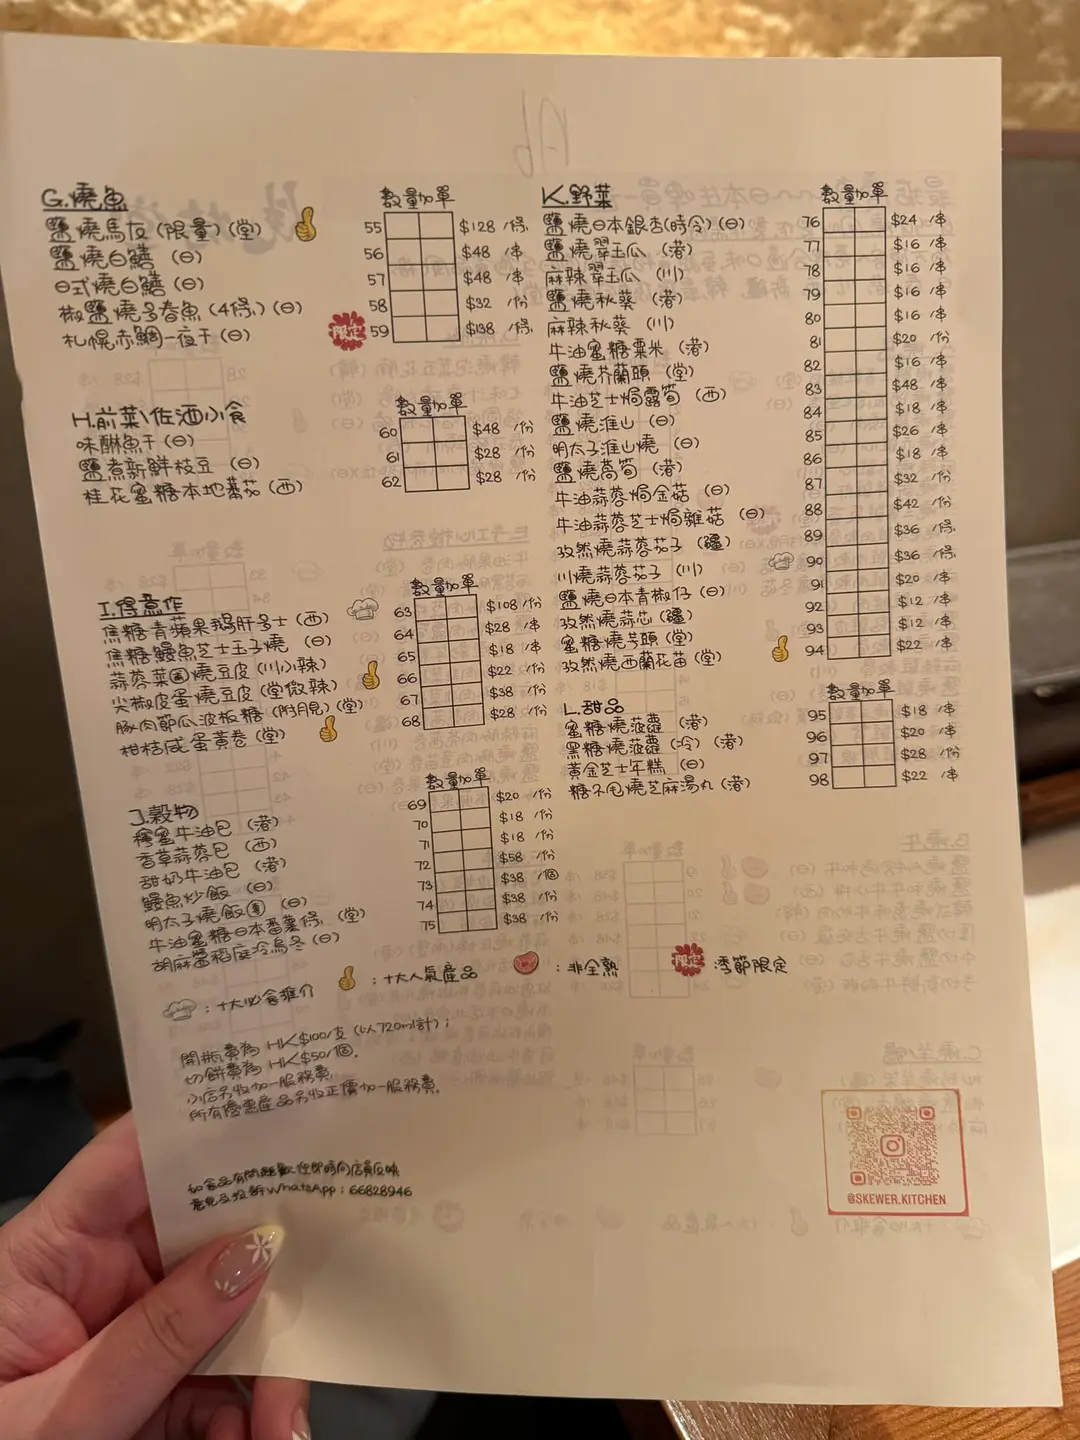 G.燒魚
數量加單
鹽燒馬友(限量)(堂) 55 $128 /條
鹽燒白鱔 (日) 56 $48 /串
日式燒白鱔 (日) 57 $48 /串
椒鹽燒多春魚(4條)(日) 58 $32 /份
札幌赤鯛一夜干(日) 限定 59 $138 /條
H.前菜\佐酒小食
數量加單
味醂魚干(日) 60 $48 /份
鹽煮新鮮枝豆 (日) 61 $28 /份
桂花蜜糖本地蕃茄(西) 62 $28 /份
I.得意作
數量加單
焦糖青蘋果鵝肝多士(西) 63 $108 /份
焦糖鰻魚芝士玉子燒 (日) 64 $28 /串
蒜蓉菜圃燒豆皮(川小辣) 65 $18 /串
尖椒皮蛋燒豆皮(堂微辣) 66 $22 /份
豚肉節瓜波板糖(附月見)(堂) 67 $38 /份
柑桔咸蛋黃卷(堂) 68 $28 /份
J.穀物
數量加單
蜜牛油包 (港) 69 $20 /份
香草蒜蓉包 (西) 70 $18 /份
甜奶牛油包 (港) 71 $18 /份
鰻魚炒飯 (日) 72 $58 /份
明太子燒飯團(日) 73 $38 /個
牛油蜜糖日本番薯條 (堂) 74 $38 /份
胡麻醬稻庭冷烏冬(日) 75 $38 /份
K.野菜
數量加單
鹽燒日本銀杏(時令)(日) 76 $24 /串
鹽燒翠玉瓜 (港) 77 $16 /串
麻辣翠玉瓜 (川) 78 $16 /串
鹽燒秋葵 (港) 79 $16 /串
麻辣秋葵 (川) 80 $16 /串
牛油蜜糖粟米 (港) 81 $20 /份
鹽燒芥蘭頭 (堂) 82 $16 /串
牛油芝士焗露筍 (西) 83 $48 /串
鹽燒淮山 (日) 84 $18 /串
明太子淮山燒 (日) 85 $26 /串
鹽燒萵筍 (港) 86 $18 /串
牛油蒜蓉焗金菇 (日) 87 $32 /份
牛油蒜蓉芝士焗雜菇 (日) 88 $42 /份
孜然燒蒜蓉茄子 (疆) 89 $36 /條
川燒蒜蓉茄子 (川) 90 $36 /條
鹽燒日本青椒仔 (日) 91 $20 /串
孜然燒蒜芯(疆) 92 $12 /串
蜜糖燒芋頭(堂) 93 $12 /串
孜然燒西蘭花苗 (堂) 94 $22 /串
L.甜品
數量加單
蜜糖燒菠蘿 (港) 95 $18 /串
黑糖燒菠蘿 (冷) (港) 96 $20 /串
黃金芝士年糕 (日) 97 $28 /份
糖不甩燒芝麻湯丸(港) 98 $22 /串
:十大必食推介
:十大人氣產品
:非全熟
限定 :季節限定
開瓶費為 HK$100/支(以720ml計);
切餅費為 HK$50/個。
小店另收加一服務費,
所有優惠產品另收正價加一服務費。
如食品有問題歡迎即時向店員反映
意見及投訴WhatsApp:66828946
@SKEWER.KITCHEN